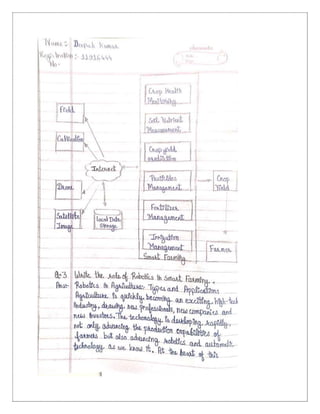 Name:- Deepak Kumar
Registration:-
No-
Date
Page
Crop Health
Monitoring
Field
Soil Nutrient
Measurement
Cultivation
Crop yield
prediction
Internet
Pesticides
Management
Crop
Yield
Drone
Fertilizer
Management
Satellite
Image
Local Data
Storage
Irrigation
Management
Smart Farming
Farmer
Q-3 Write the role of Robotics in Smart Farming.
Ans- Robotics in Agriculture: Types and Applications
Agriculture is quickly becoming an exciting high-tech
industry, drawing new professionals, new companies and
new investors. The technology is developing rapidly,
not only advancing the production capabilities of
farmers but also advancing robotics and automatic
technology as we know it. At the heart of this